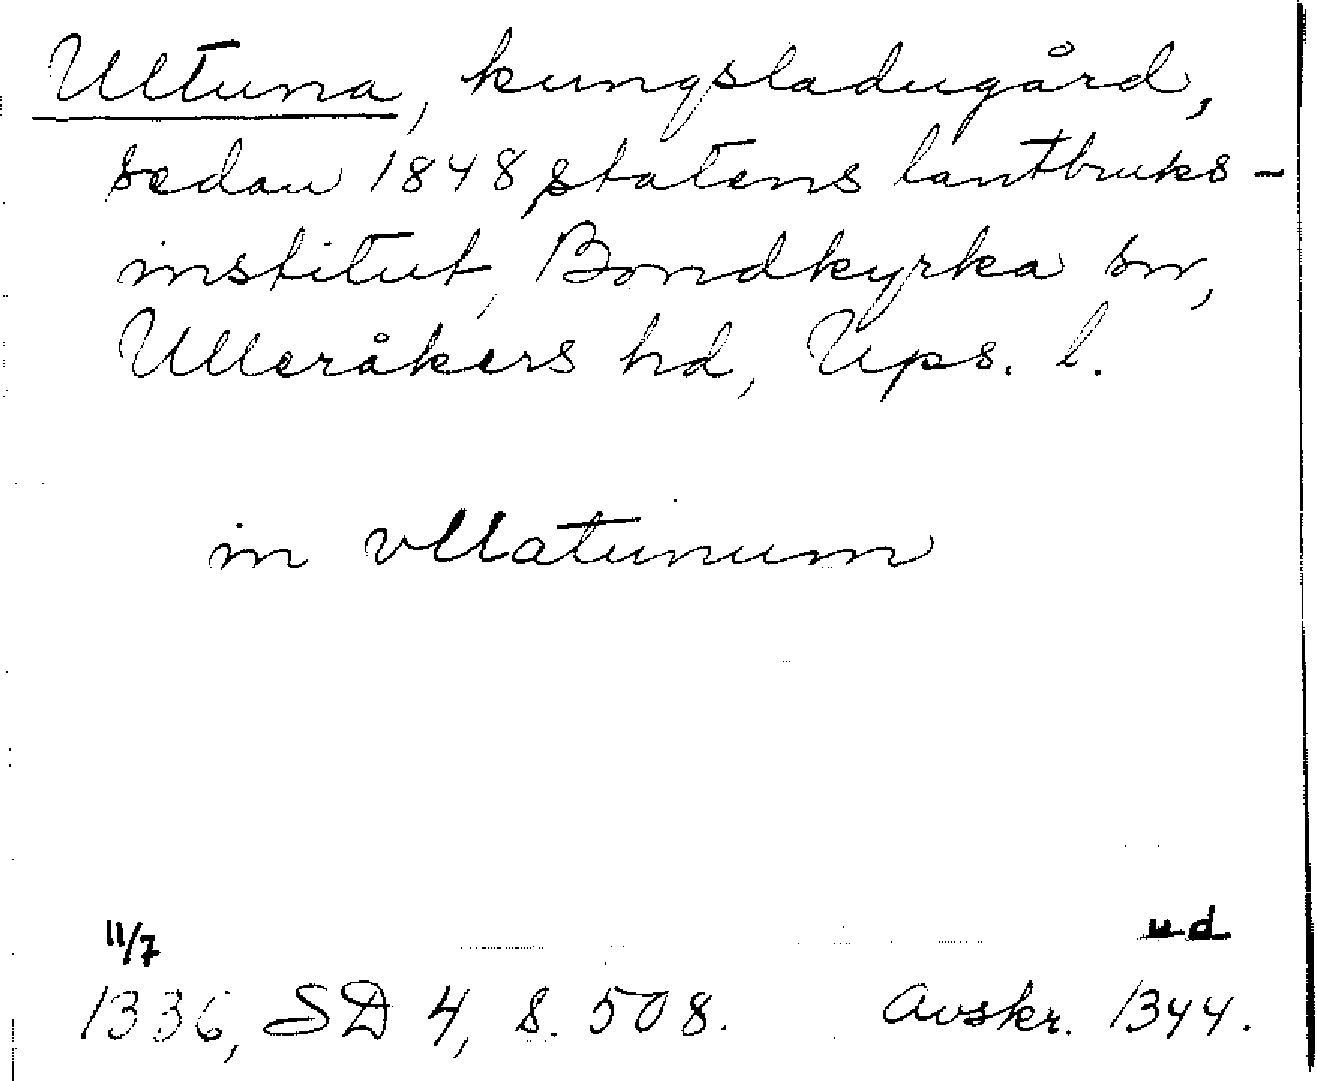 Ultuna, kungsladugård,
sedan 1848 statens lantbruks-
institut, Bondkyrka sn,
Ulleråkers hd, Ups. l.
in vllatunum
11/7 ud
1336, SD 4, s. 508. Avskr. 1344.